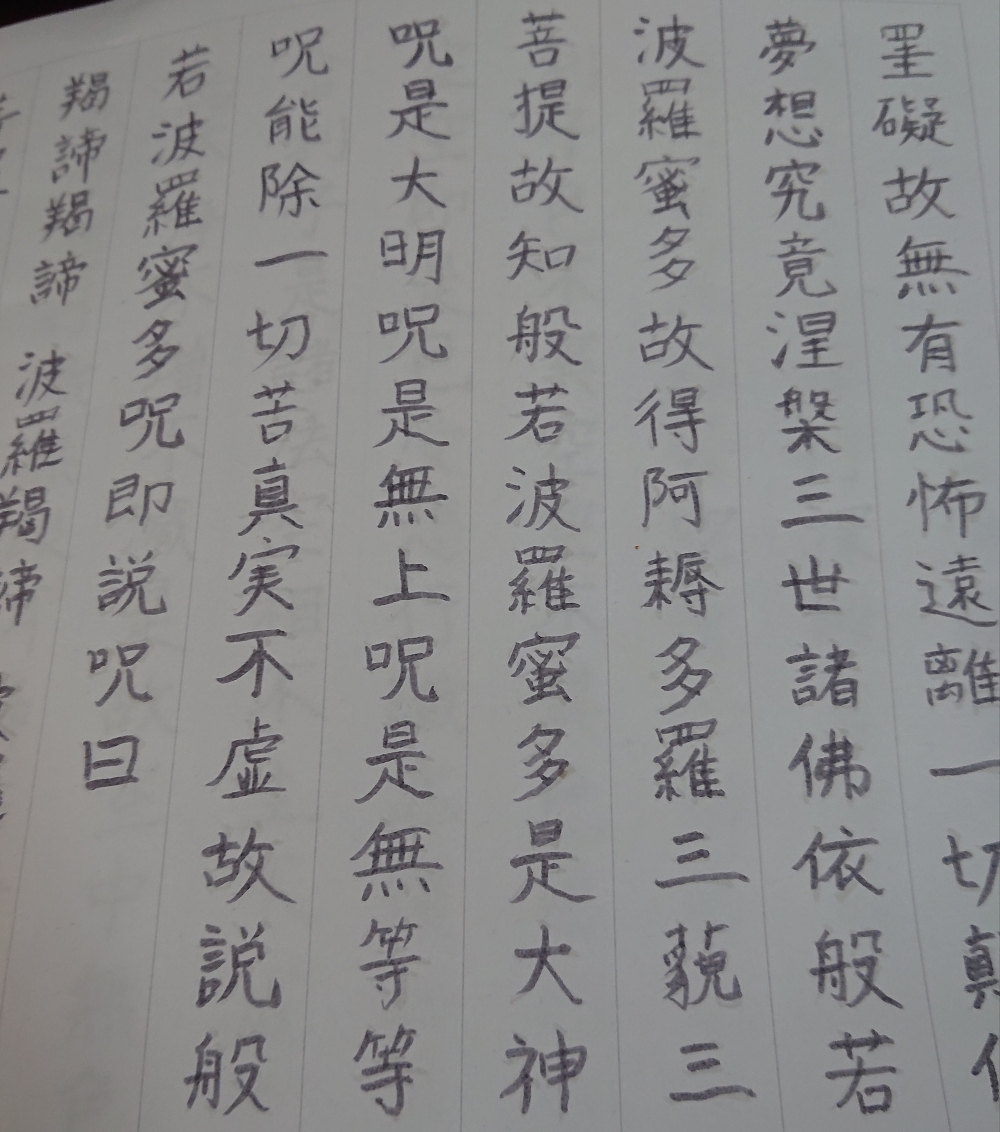 罣礙故無有恐怖遠離一切顛
夢想究竟涅槃三世諸佛依般若
波羅蜜多故得阿耨多羅三藐三
菩提故知般若波羅蜜多是大神
呪是大明呪是無上呪是無等等
呪能除一切苦真実不虚故説般
若波羅蜜多呪即説呪曰
羯諦羯諦 波羅羯諦